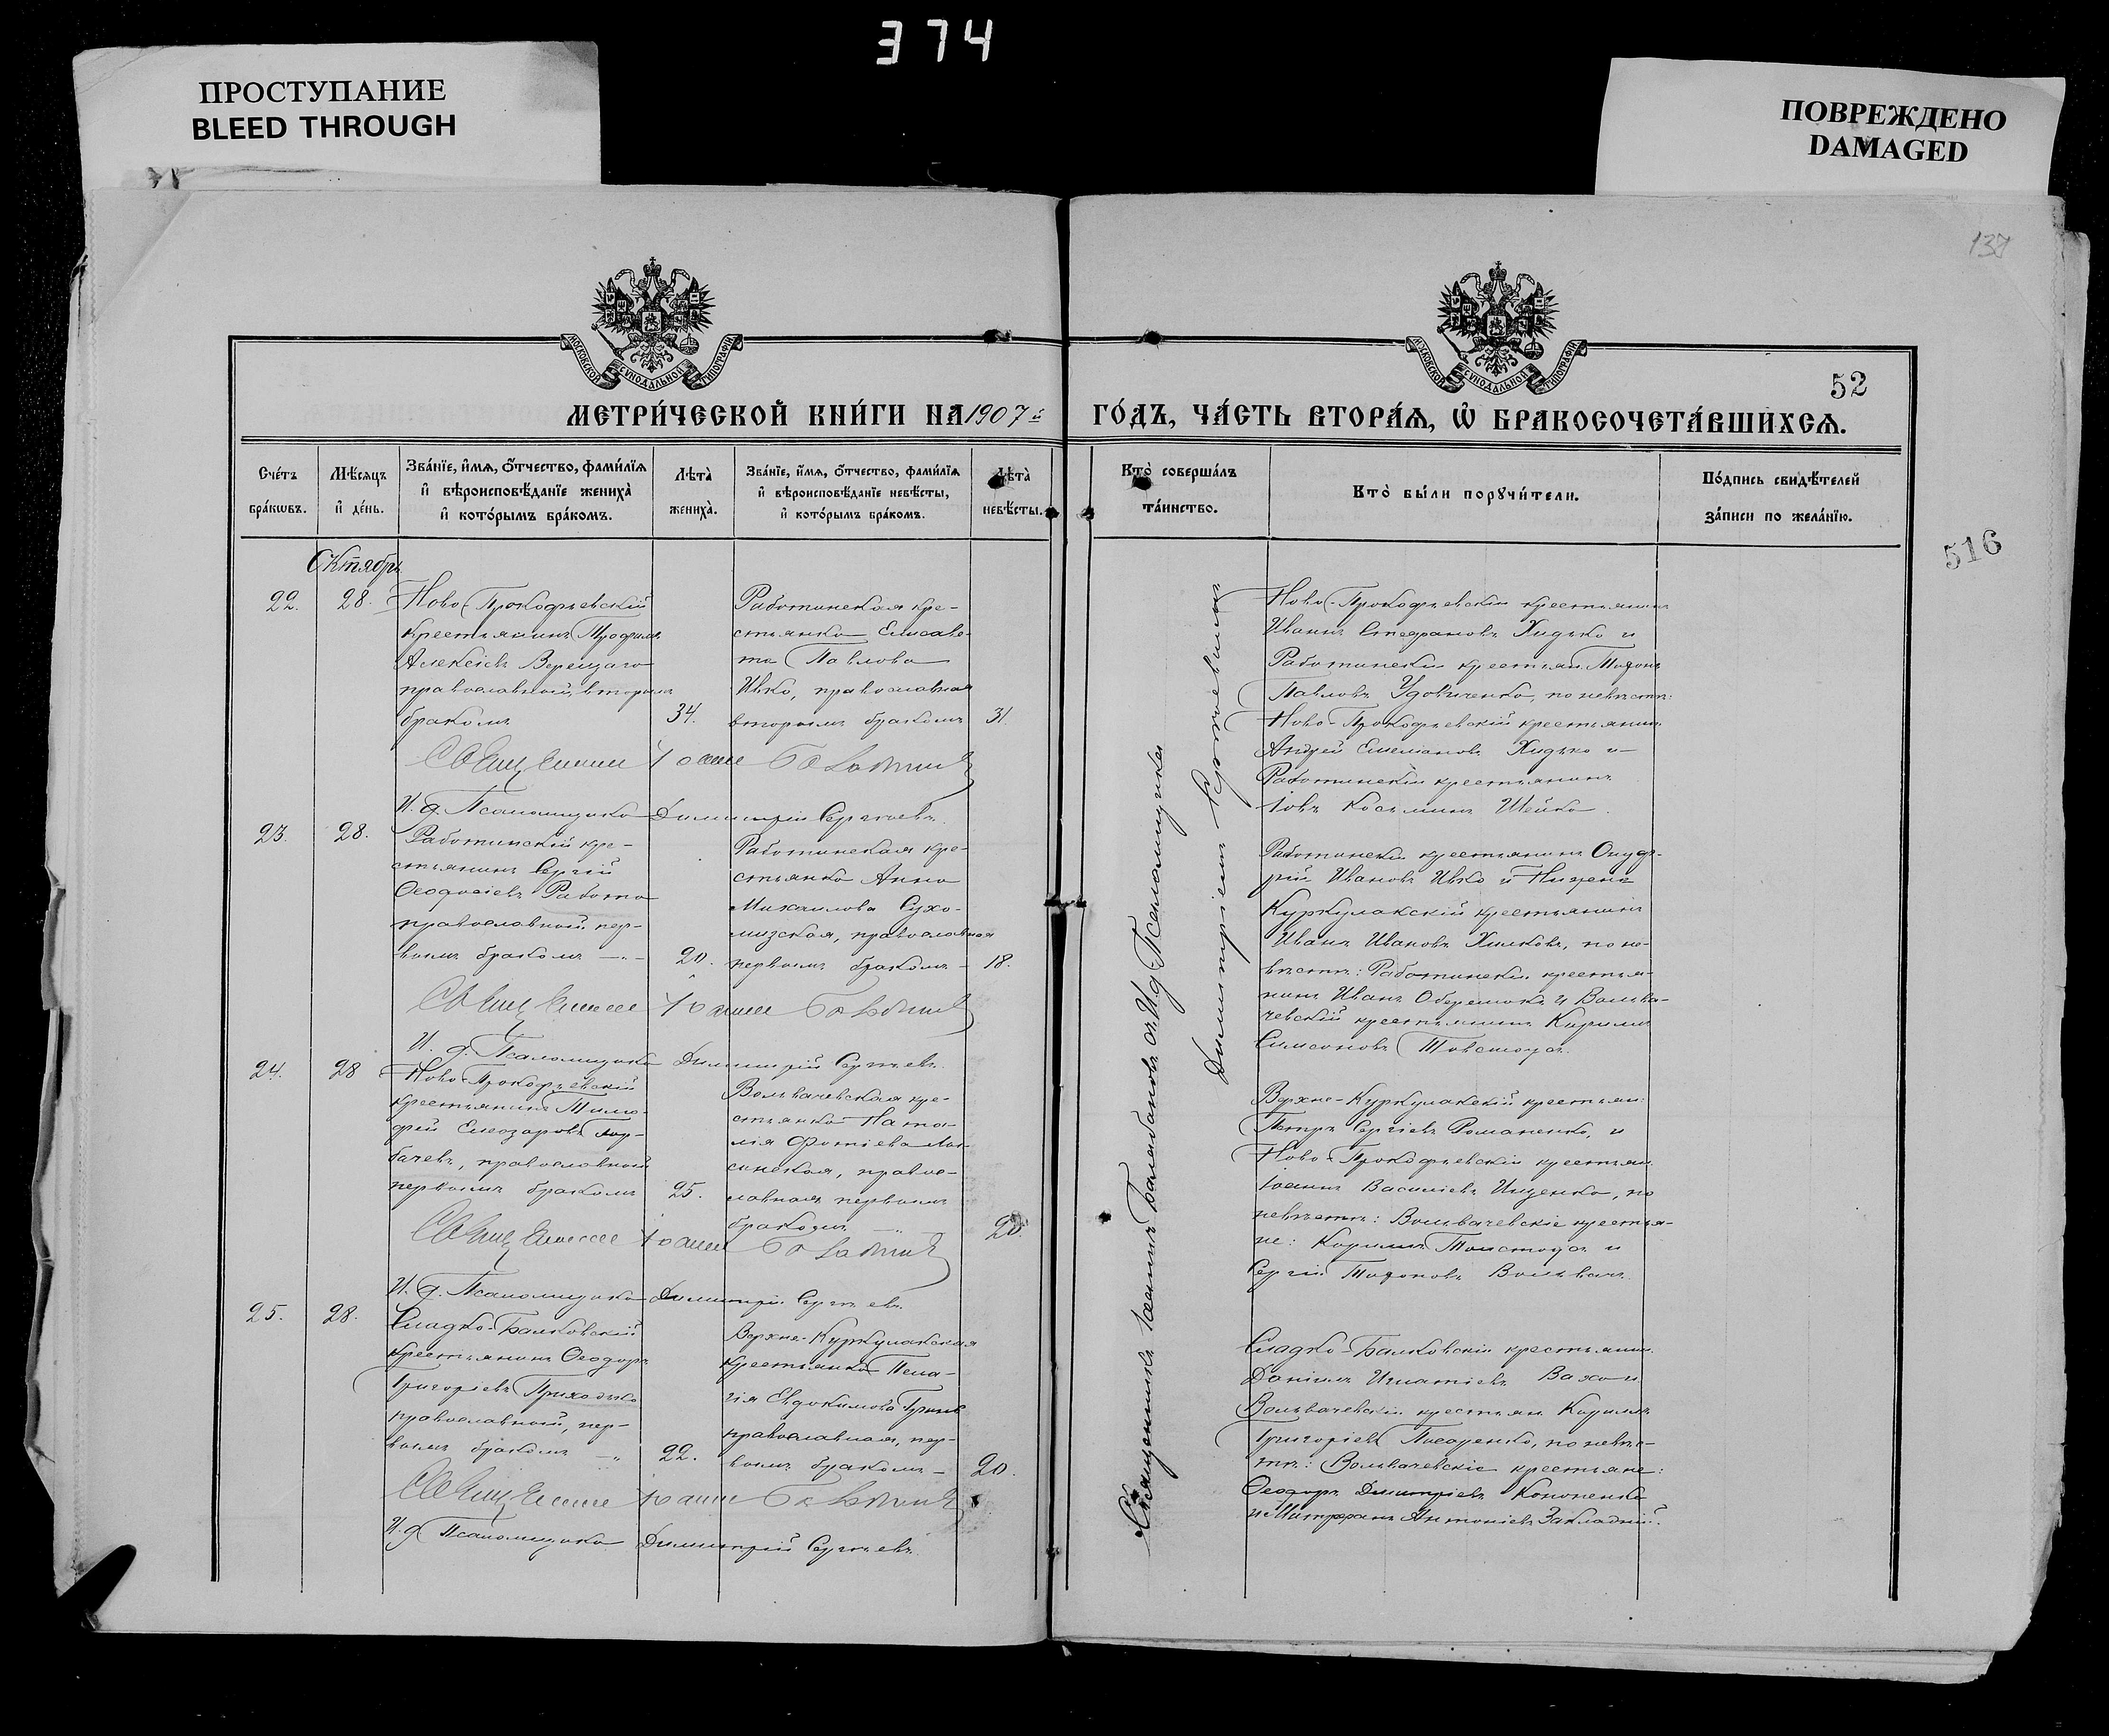 374
ПРОСТУПАНИЕ
BLEED THROUGH
ПОВРЕЖДЕНО
DAMAGED
137
52
516
МОСКОВСКОЙ СѴНОДАЛЬНОЙ ТИПОГРАФІИ
МОСКОВСКОЙ СѴНОДАЛЬНОЙ ТИПОГРАФІИ
МЕТРИ́ЧЕСКОЙ КНИ́ГИ НА 1907 й
ГО́ДЪ, ЧА́СТЬ ВТОРА́Ѧ, Ѽ БРАКОСОЧЕТА́ВШИХСѦ.
Сче́тъ бра́кѡвъ.
Мѣ́сѧцъ и҆ де́нь.
Зва́нїе, и҆́мѧ, ѻ҆́тчество, фами́лїѧ и҆ вѣроисповѣ́данїе жениха̀ и҆ кото́рымъ бра́комъ.
Лѣта̀ жениха̀.
Зва́нїе, и҆́мѧ, ѻ҆́тчество, фами́лїѧ и҆ вѣроисповѣ́данїе невѣ́сты, и҆ кото́рымъ бра́комъ.
Лѣта̀ невѣ́сты.
Кто̀ соверша́лъ та́инство.
Кто̀ бы́ли порꙋчи́тели.
По́дпись свидѣ́телей за́писи по жела́нїю.
Октябрь
22.
28.
Ново-Прокофьевскій
крестьянинъ Трофимъ
Алексіевъ Верещага
православный, вторымъ
бракомъ
34.
Работинская кре-
стьянка Елисаве-
та Павлова
Ивко, православная
вторымъ бракомъ
31.
Ново-Прокофьевскій крестьянинъ
Иванъ Стефановъ Хидько и
Работинскій крестьян. Тифонъ
Павловъ Удовиченко, по невѣстѣ:
Ново-Прокофьевскій крестьянинъ
Андрей Емеліановъ Хидько и
Работинскій крестьянинъ
Іовъ Косьминъ Шейко.
Священникъ Іоаннъ Балабановъ
И. д. Псаломщика Димитрій Сергѣевъ.
23.
28.
Работинскій кре-
стьянинъ Сергій
Ѳеодосіевъ Работа
православный, пер-
вымъ бракомъ
20.
Работинская кре-
стьянка Анна
Михаилова Сухо-
мизская, православная
первымъ бракомъ
18.
Работинскій крестьянинъ Онуф-
рій Ивановъ Ивко и Нижне
Куркулакскій крестьянинъ
Иванъ Ивановъ Хилковъ, по не-
вѣстѣ: Работинскій крестья-
нинъ Иванъ Оберемокъ и Вольва-
чевскій крестьянинъ Кириллъ
Симеоновъ Товстоусъ.
Священникъ Іоаннъ Балабановъ
И. д. Псаломщика Димитрій Сергѣевъ.
24.
28
Ново-Прокофьевскій
крестьянинъ Тимо-
фей Елеазаровъ Гор-
бачевъ, православный
первымъ бракомъ
25.
Вольвачевская кре-
стьянка Ната-
лія Фотіева
православная, первымъ
бракомъ
20.
Верхне-Куркулакскій крестьян:
Петръ Сергіевъ Романенко, и
Ново-Прокофьевскій крестьян.
Іоаннъ Василіевъ Ищенко, по
невѣстѣ: Вольвачевскіе крестья-
не: Кириллъ Товстоусъ и
Сергій Тифоновъ Вольвачъ.
Священникъ Іоаннъ Балабановъ
И. д. Псаломщика Димитрій Сергѣевъ.
25.
28.
Сладко-Балковскій
крестьянинъ Ѳеодоръ
Григоріевъ Приходько
православный, пер-
вымъ бракомъ
22.
Верхне-Куркулакская
крестьянка Пела-
гія Евдокимова
православная, пер-
вымъ бракомъ
20.
Сладко-Балковскій крестьянинъ
Даніилъ Игнатіевъ Вахо и
Вольвачевскій крестьян. Кириллъ
Григоріевъ Писаренко, по невѣ-
стѣ: Вольвачевскіе крестьяне:
Ѳеодоръ Димитріевъ Кононенко
и Митрофанъ Антоніевъ Закладній.
Священникъ Іоаннъ Балабановъ
И. д. Псаломщика Димитрій Сергѣевъ.
Священникъ Іоаннъ Балабановъ съ И. д. Псаломщика
Димитріемъ Сергѣевымъ